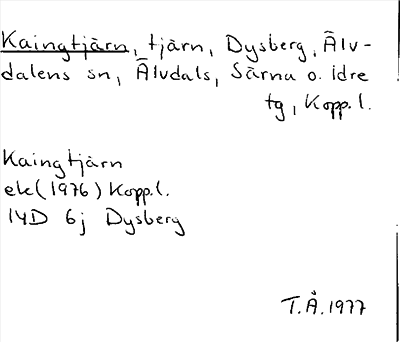 Kaingtjärn, tjärn, Dysberg, Älv-
dalens sn, Älvdals, Särna o. Idre
tg, Kopp.l.
Kaingtjärn
ek(1976) Kopp.l.
14D 6j Dysberg
T.Å.1977